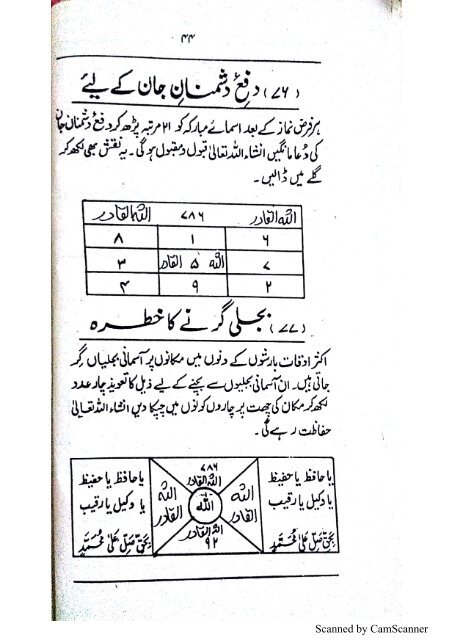 ۴۴
(۷۶) دفع دشمنانِ جان کے لیئے
ہر فرض نماز کے بعد اسمائے مبارکہ کو ۲۱ مرتبہ پڑھ کر دفع دشمنان جان
کی دُعا مانگیں انشاء اللہ تعالیٰ قبول و مقبول ہوگی ۔ یہ نقش بھی لکھ کر
گلے میں ڈالیں ۔
اللہ القادر ۷۸۶ اللہ القادر
۶ ۱ ۸
۷ اللہ ۵ القادر ۳
۲ ۹ ۴
(۷۷) بجلی گرنے کا خطرہ
اکثر اوقات بارشوں کے دنوں میں مکانوں پر آسمانی بجلیاں گر
جاتی ہیں ۔ ان آسمانی بجلیوں سے بچنے کے لیے ذیل کا تعویذ چار عدد
لکھ کر مکان کی چھت پر چاروں کونوں میں چپکا دیں انشاء اللہ تعالیٰ
حفاظت رہے گی ۔
۷۸۶
اللہ القادر
یا حافظ یا حفیظ
یا وکیل یا رقیب
بحق صل علیٰ محمدٍ
اللہ القادر
اللہ
اللہ القادر
یا حافظ یا حفیظ
یا وکیل یا رقیب
بحق صل علیٰ محمدٍ
اللہ القادر
۹۲
Scanned by CamScanner